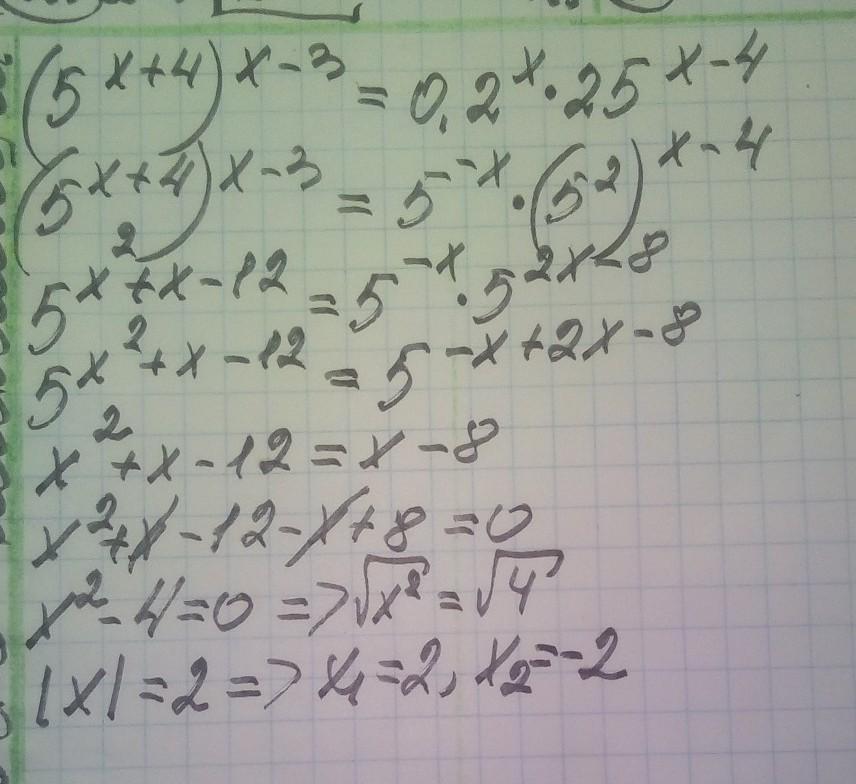 (5^{x+4})^{x-3} = 0,2^x · 25^{x-4}
(5^{x+4})^{x-3} = 5^{-x} · (5^2)^{x-4}
5^{x^2+x-12} = 5^{-x} · 5^{2x-8}
5^{x^2+x-12} = 5^{-x+2x-8}
x^2+x-12=x-8
x^2+x-12-x+8=0
x^2-4=0 => √x^2 = √4
|x|=2 => x_1=2, x_2=-2